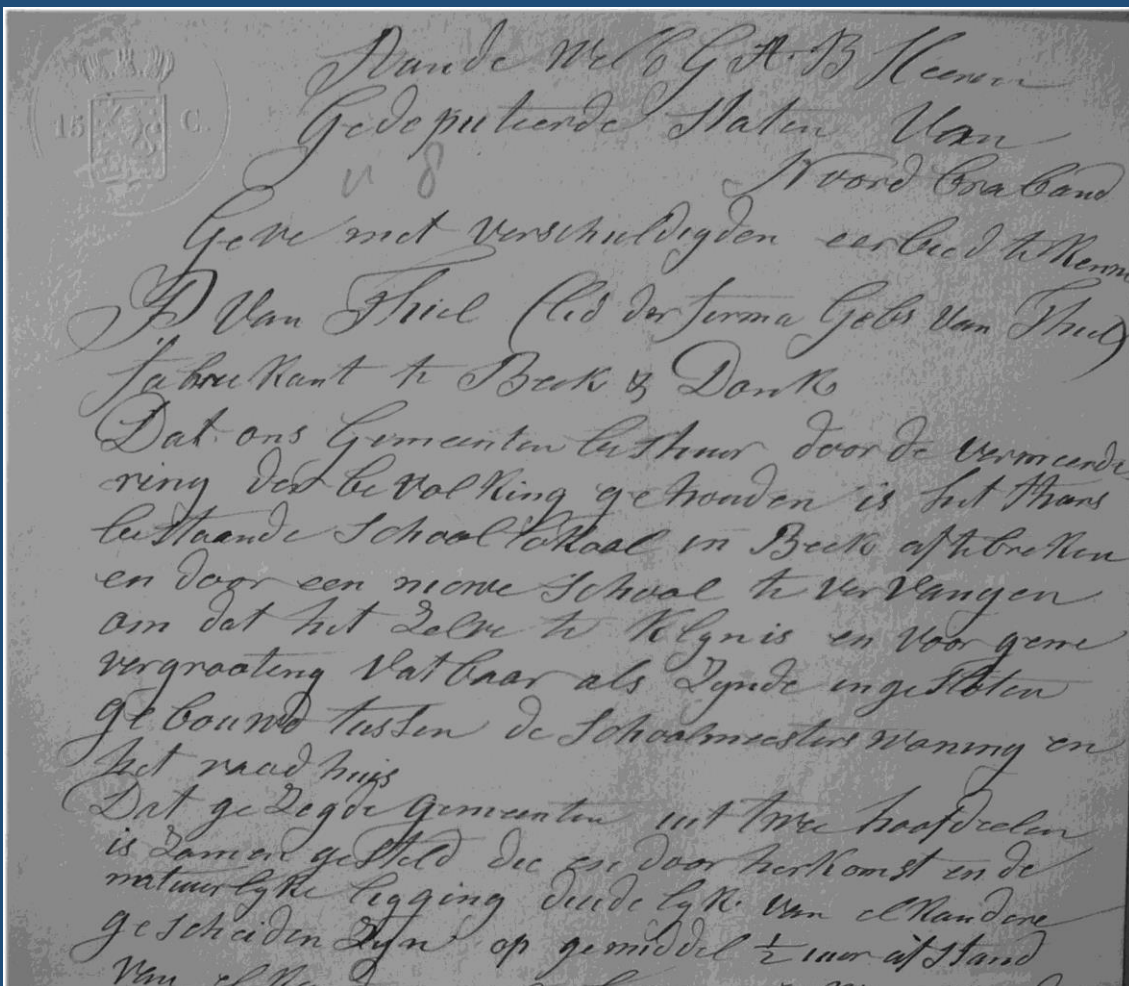 15 C.
Aan de Wel E G A. B Heeren
Gedeputeerde Staten Van
Noord braband
n 8
Geve met verschuldigden eerbied te kennen
P Van Thiel (lid der firma Gebs Van Thiel)
fabriekant te Beek & Donk
Dat ons Gemeenten bestuur door de vermeerde
ring der bevolking gehouden is het thans
bestaande School lokaal in Beek aftebreken
en door een nieuwe School te vervangen
om dat het Zelve te Klyn is en voor gene
vergrooting Vatbaar als Zynde ingesloten
gebouwd tussen de Schoolmeesters woning en
het raadhuis
Dat gezegde gemeenten uit twee hoofdeelen
is Zamen gesteld die en door herkomst en de
natuurlyke ligging duidelyk van elkandere
gescheiden Zyn op gemiddel ½ uur afstand
van